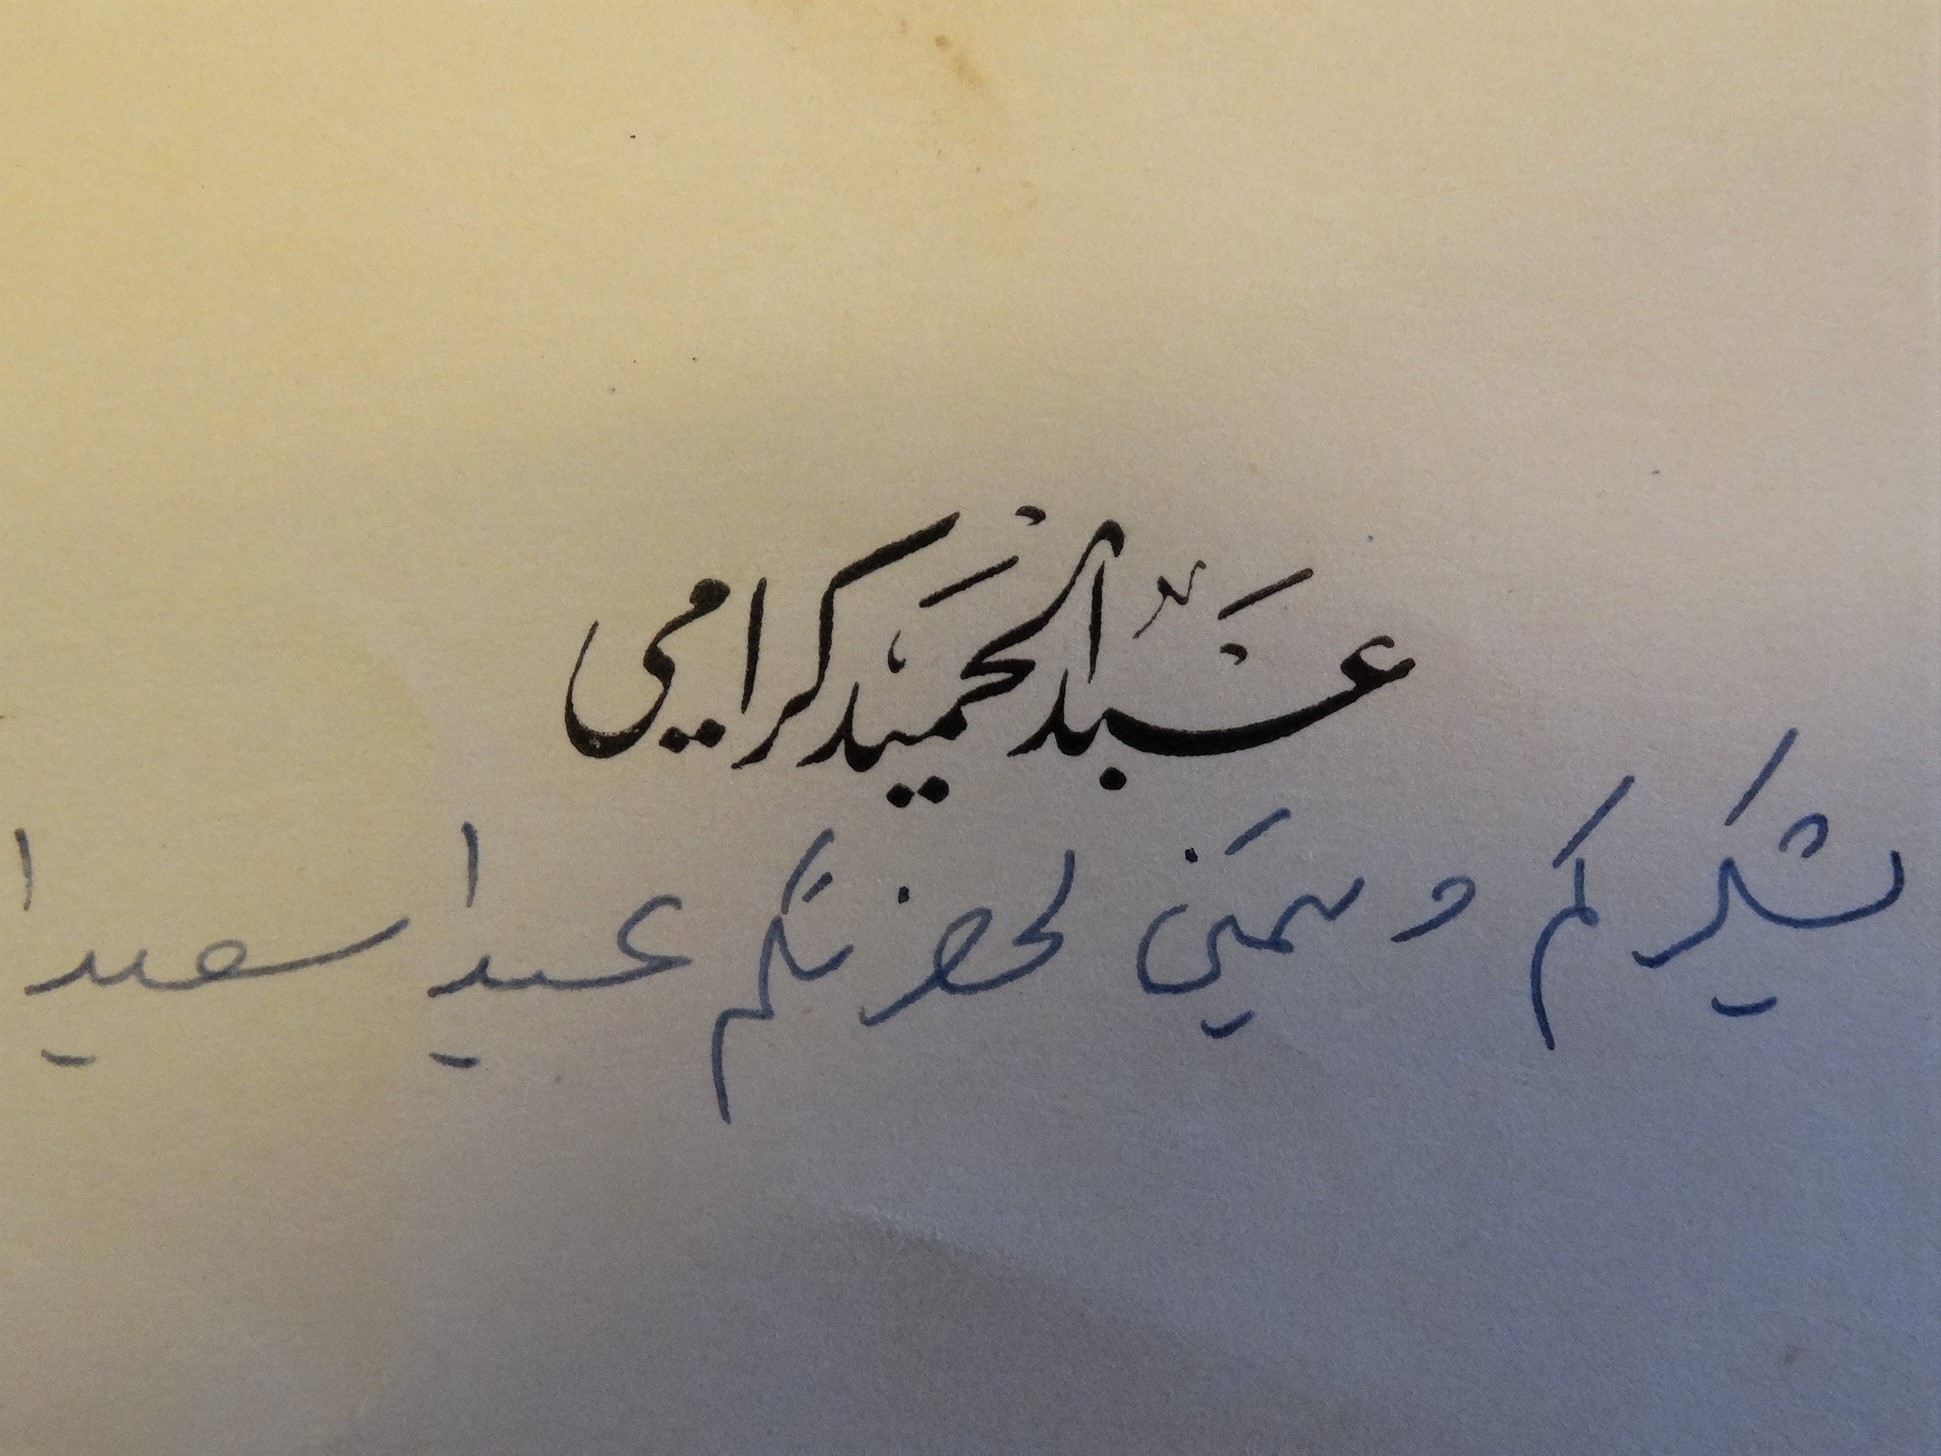 عَبد الحَميد كرامي
يشكركم ويتمنى لحضرتكم عيدا سعيدا